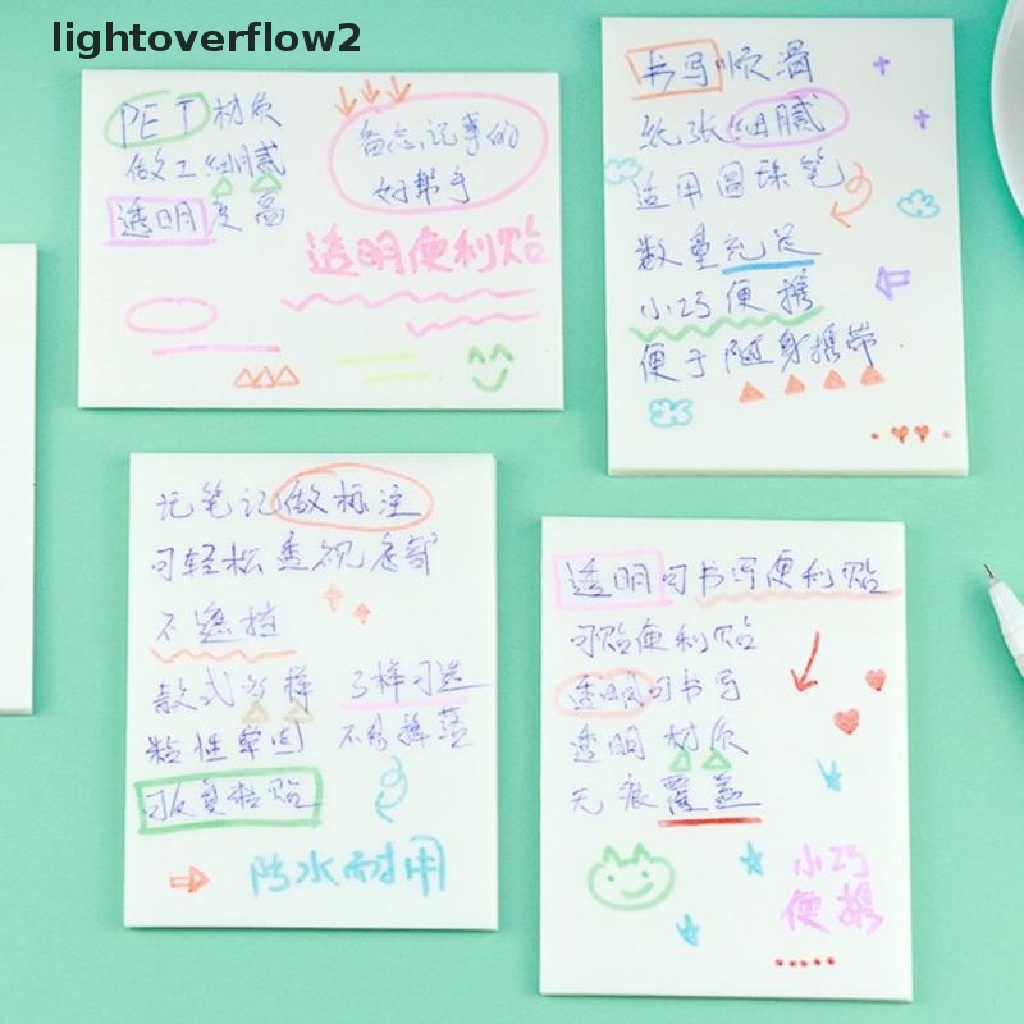 lightoverflow2
PET材质
做工细腻
透明度高
备忘,记事的
好帮手
透明便利贴
书写顺滑
纸张细腻
适用圆珠笔
数量充足
小巧便携
便于随身携带
记笔记做标注
可轻松透视底部
不遮挡
款式多样
多样可选
粘性牢固
不易掉落
可反复粘贴
防水耐用
透明可书写便利贴
可贴便利贴
透明可书写
透明材质
无痕覆盖
小巧
便携